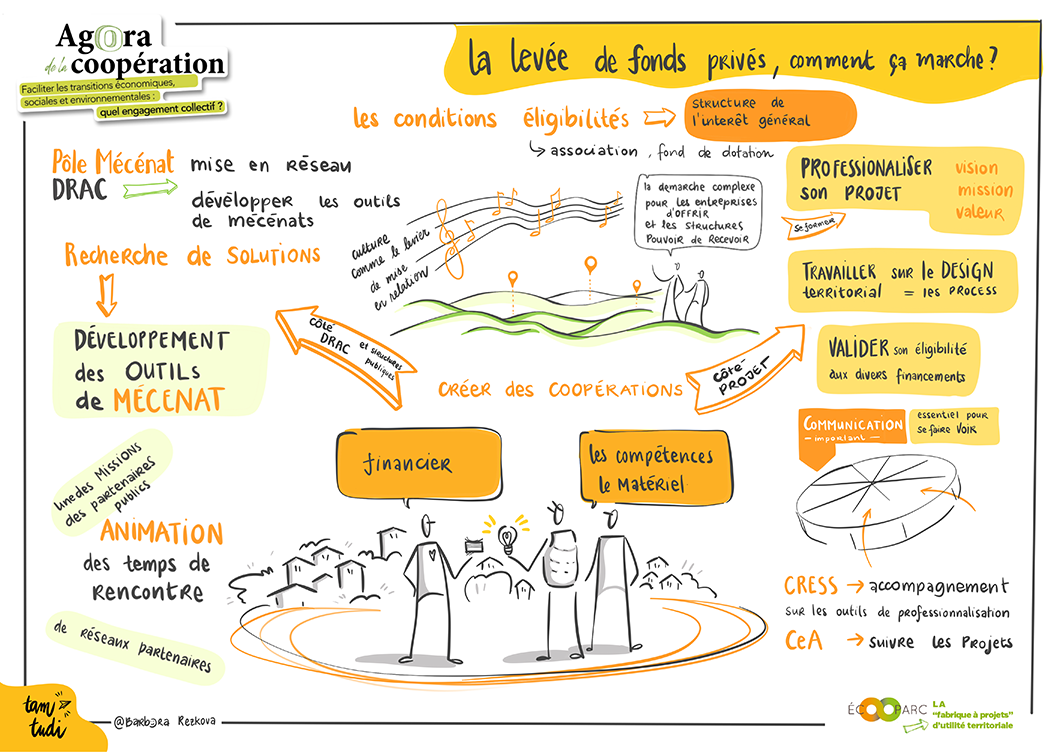 Agora
de la coopération
Faciliter les transitions économiques,
sociales et environnementales :
quel engagement collectif ?
la levée de fonds privés, comment ça marche ?
les conditions éligibilités
structure de
l'interêt général
association, fond de dotation
Pôle Mécénat
DRAC
mise en réseau
développer les outils
de mécénats
Recherche de solutions
DÉVELOPPEMENT
des OUTILS
de MÉCENAT
culture
comme le levier
de mise
en relation
la demarche complexe
pour les entreprises
d'OFFRIR
et les structures
POUVOIR DE RECEVOIR
PROFESSIONALISER
son PROJET
vision
mission
valeur
se former
TRAVAILLER sur le DESIGN
territorial = les PROCESS
VALIDER son éligibilité
aux divers financements
COMMUNICATION
— important —
essentiel pour
se faire VOIR
côté
DRAC
et structures
publiques
CRÉER des COOPÉRATIONS
côté
PROJET
financier
les compétences
le MATÉRIEL
une des Missions
des partenaires
publics
ANIMATION
des temps de
RENCONTRE
de réseaux partenaires
CRESS → accompagnement
sur les outils de professionnalisation
CeA → suivre les Projets
tam
tudi
@Barbora Rezkova
ÉCOOPARC
LA
"fabrique à projets"
d'utilité territoriale